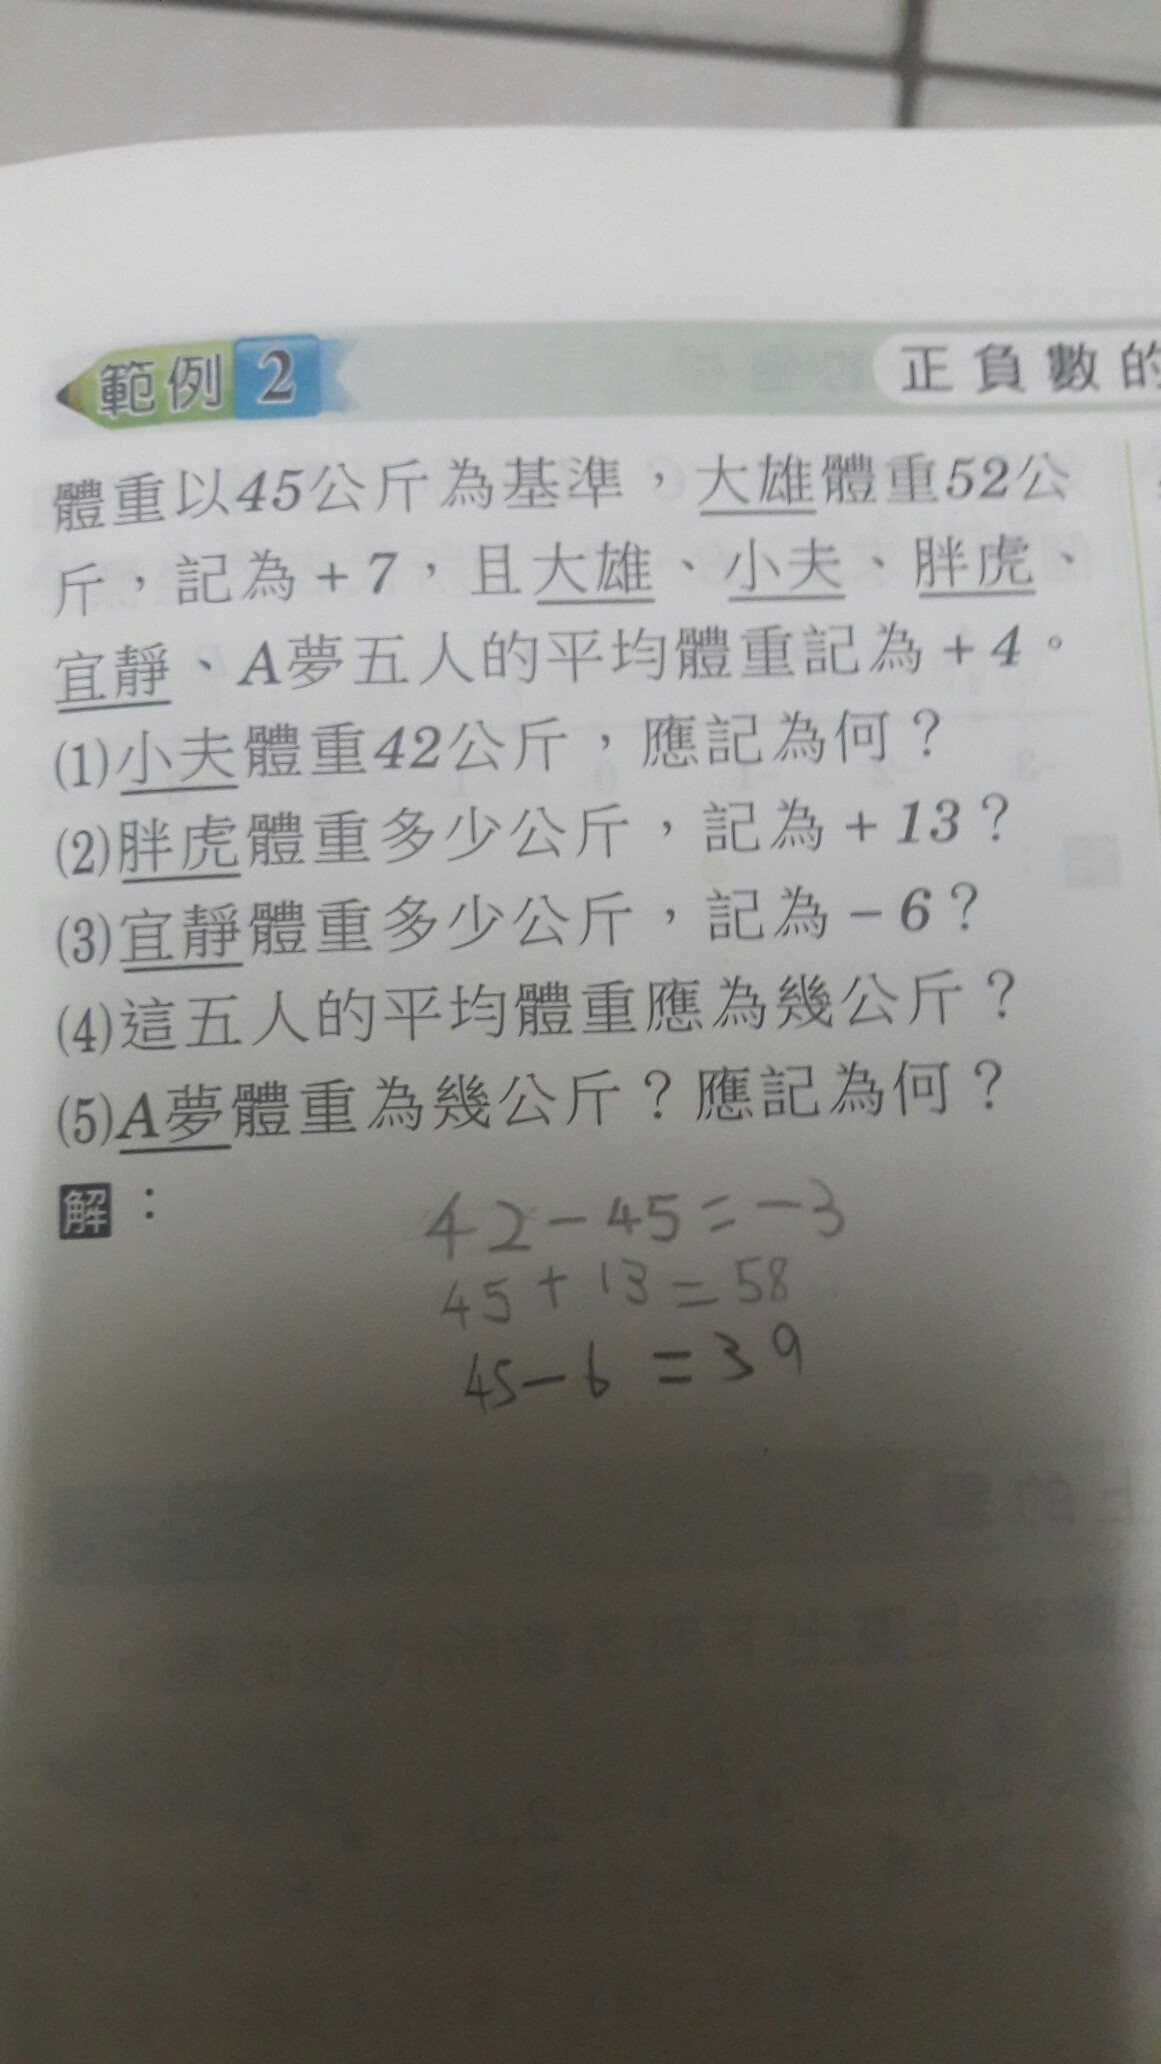 範例 2 正負數的
體重以45公斤為基準，大雄體重52公
斤，記為+7，且大雄、小夫、胖虎、
宜靜、A夢五人的平均體重記為+4。
(1)小夫體重42公斤，應記為何？
(2)胖虎體重多少公斤，記為+13？
(3)宜靜體重多少公斤，記為-6？
(4)這五人的平均體重應為幾公斤？
(5)A夢體重為幾公斤？應記為何？
解：
42-45=-3
45+13=58
45-6=39